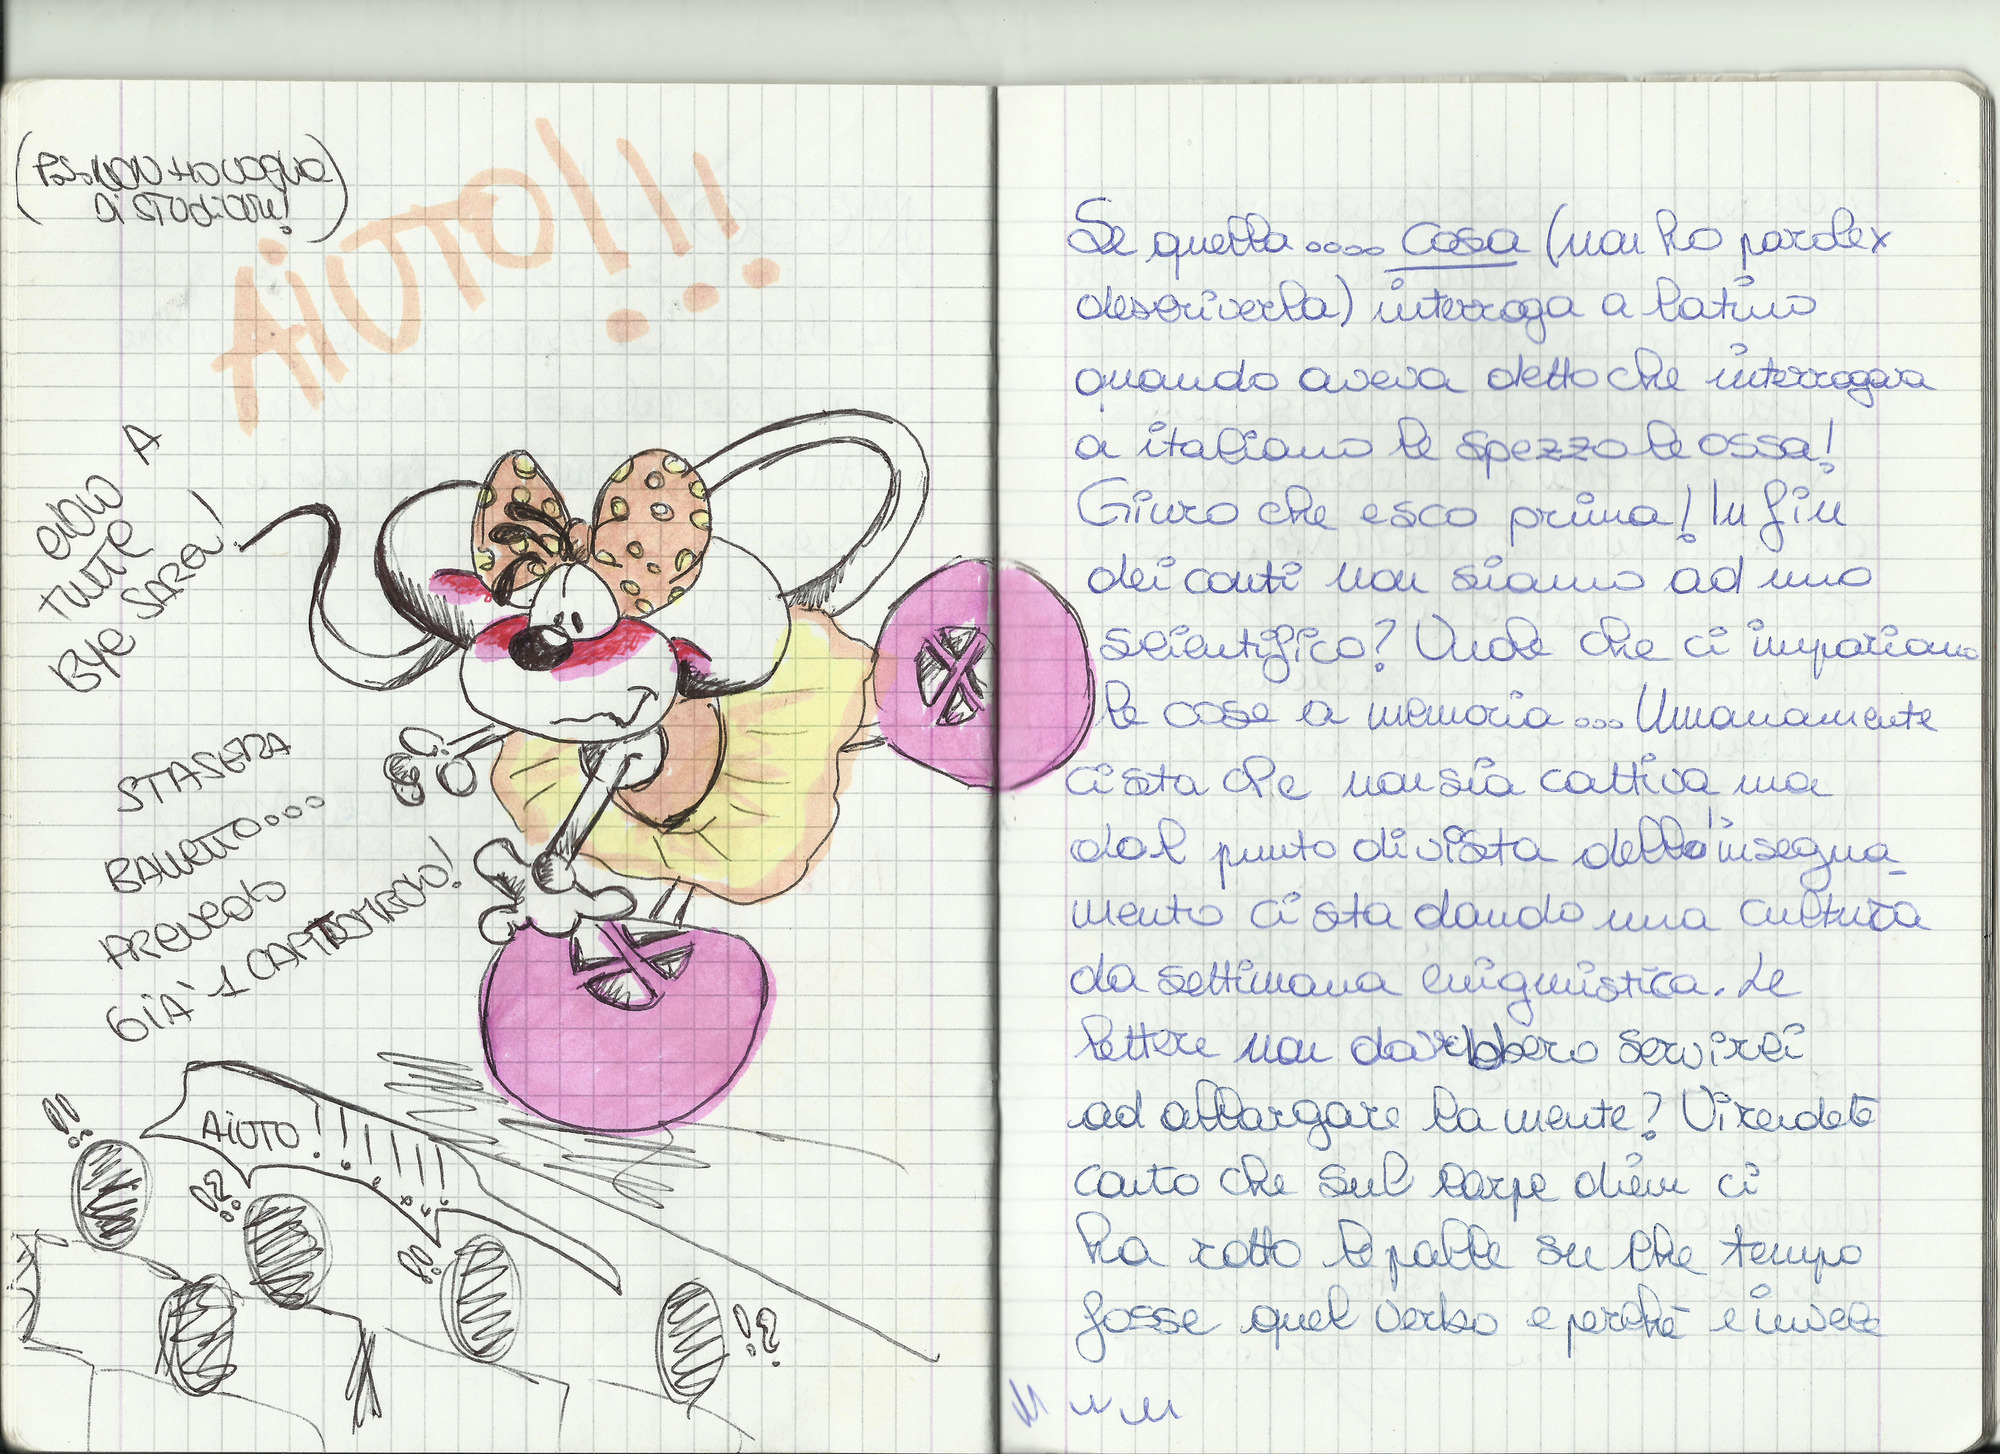 (PS. NON HO VOGLIA
DI STUDIARE!)
AIUTO!!!
CIAO A
TUTTE
BYE SARA!
STASERA
BALLETTO....
PREVEDO
GIA' 1 CAPITOMBOLO!
AIUTO!!!!!!
!!
!?
!!
!?
Se quella.... cosa (non ho parole x
descriverla) interroga a latino
quando aveva detto che interrogava
a italiano le spezzo le ossa!
Giuro che esco prima! In fin
dei conti non siamo ad uno
scientifico? Vuole che ci impariamo
le cose a memoria... Umanamente
ci sta che non sia cattiva ma
dal punto di vista dell'insegna-
mento ci sta dando una cultura
da settimana enigmistica. Le
lettere non dovrebbero servirci
ad allargare la mente? Vi rendete
conto che sul carpe diem ci
ha rotto le palle su che tempo
fosse quel verbo e perchè e invece